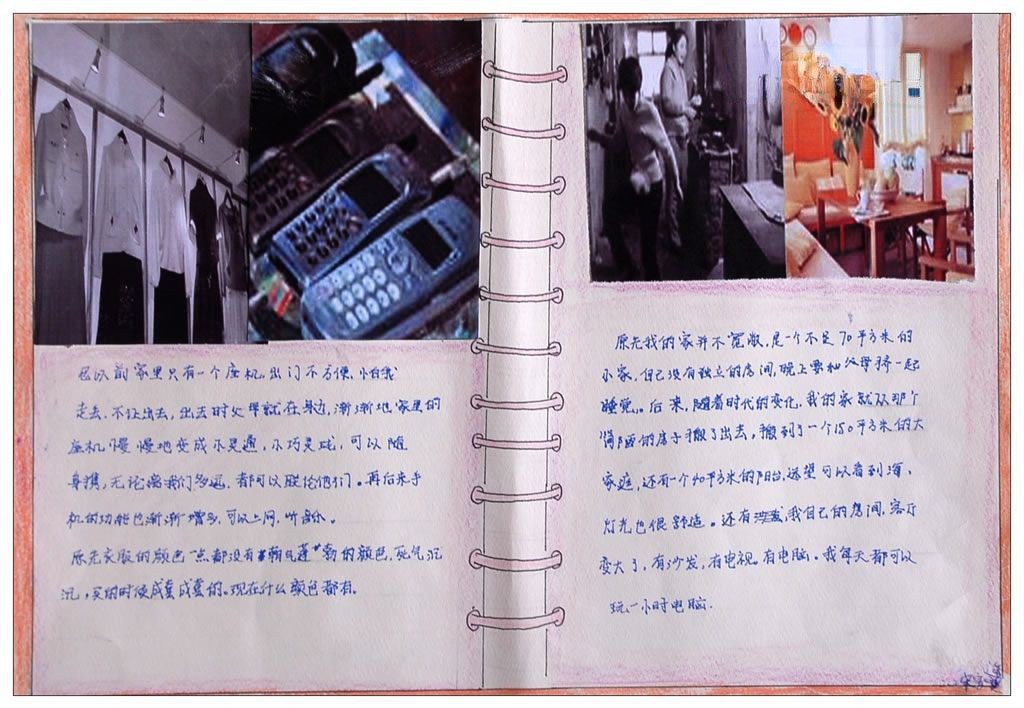 以前家里只有一个座机,出门不方便,怕我
走丢,不让出去,出去时父母就在身边,渐渐地家里的
座机,慢慢地变成小灵通,小巧灵珑,可以随
身携,无论离我们多远,都可以联络他们。再后来手
机的功能也渐渐增多,可以上网,听音乐。
原先衣服的颜色一点都没有朝气蓬勃的颜色,死气沉
沉,买的时候成套成套的。现在什么颜色都有。
原先我的家并不宽敞,是一个不足70平方米的
小家,自己没有独立的房间,晚上要和父母挤一起
睡觉。后来,随着时代的变化,我的家就从那个
简陋的房子搬了出去,搬到了一个150平方米的大
家庭,还有一个40平方米的阳台,远望可以看到海,
灯光也很舒适。还有我自己的房间,客厅
变大了,有沙发,有电视,有电脑。我每天都可以
玩一小时电脑.